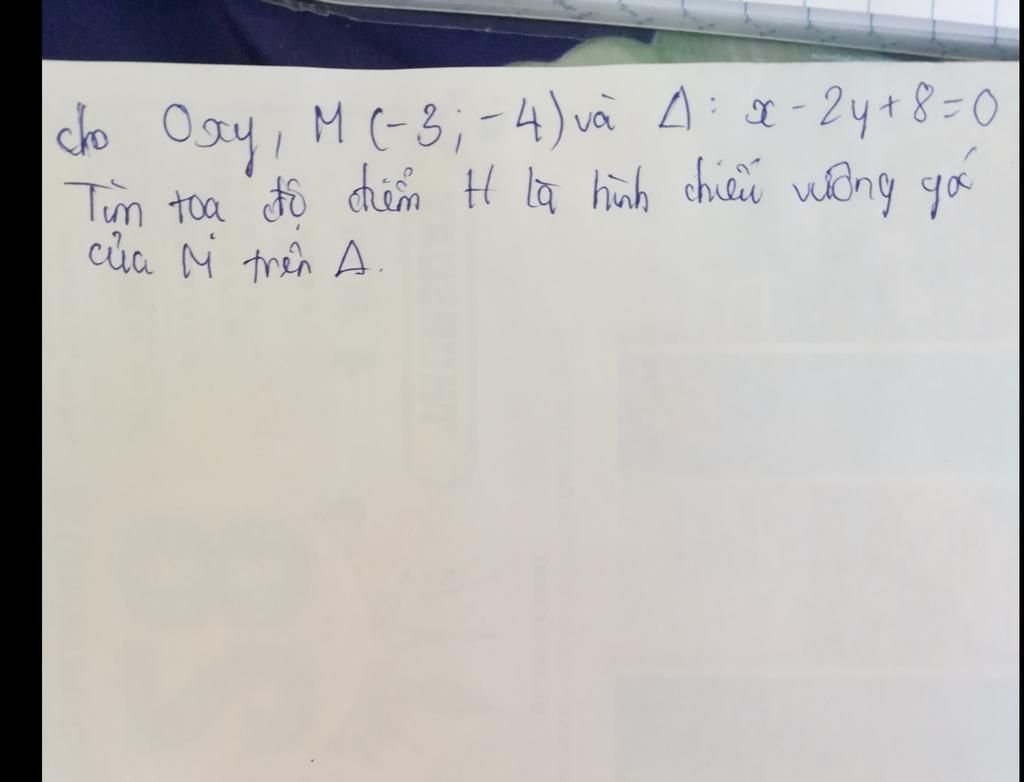 cho Oxy, M (-3; -4) và Δ: x - 2y + 8 = 0
Tìm tọa độ điểm H là hình chiếu vuông góc
của M trên Δ.
THURSDAY
28